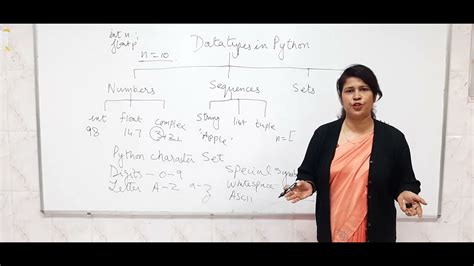 int n
float p
n = 10
Datatypes in Python
Numbers Sequences Sets
int float complex string list tuple
98 14.7 3+2i 'Apple' n=[
Python Character Set
Digits - 0-9 Special Symb
Letter A-Z a-z Whitespace
ASCII